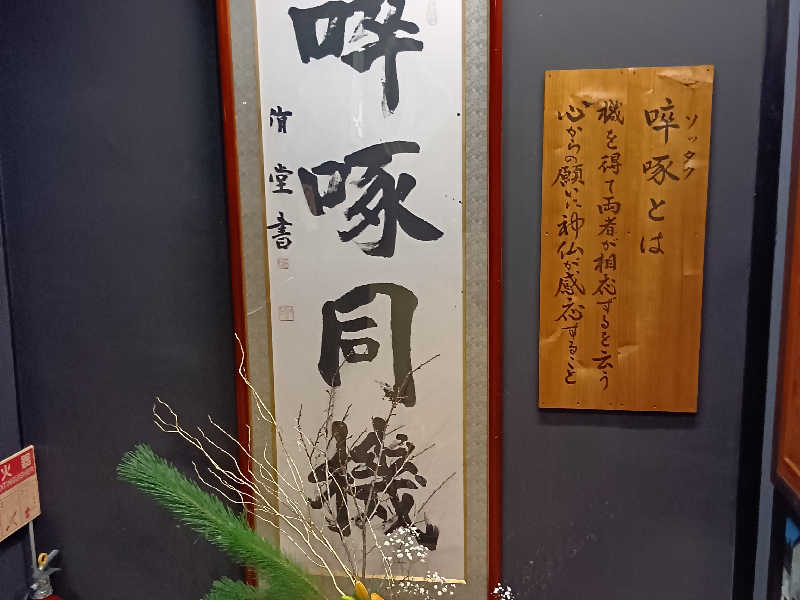 啐啄同機
清堂書
ソッタク
啐啄とは
機を得て両者が相応ずるを云う
心からの願いに神仏が感応すること
火器